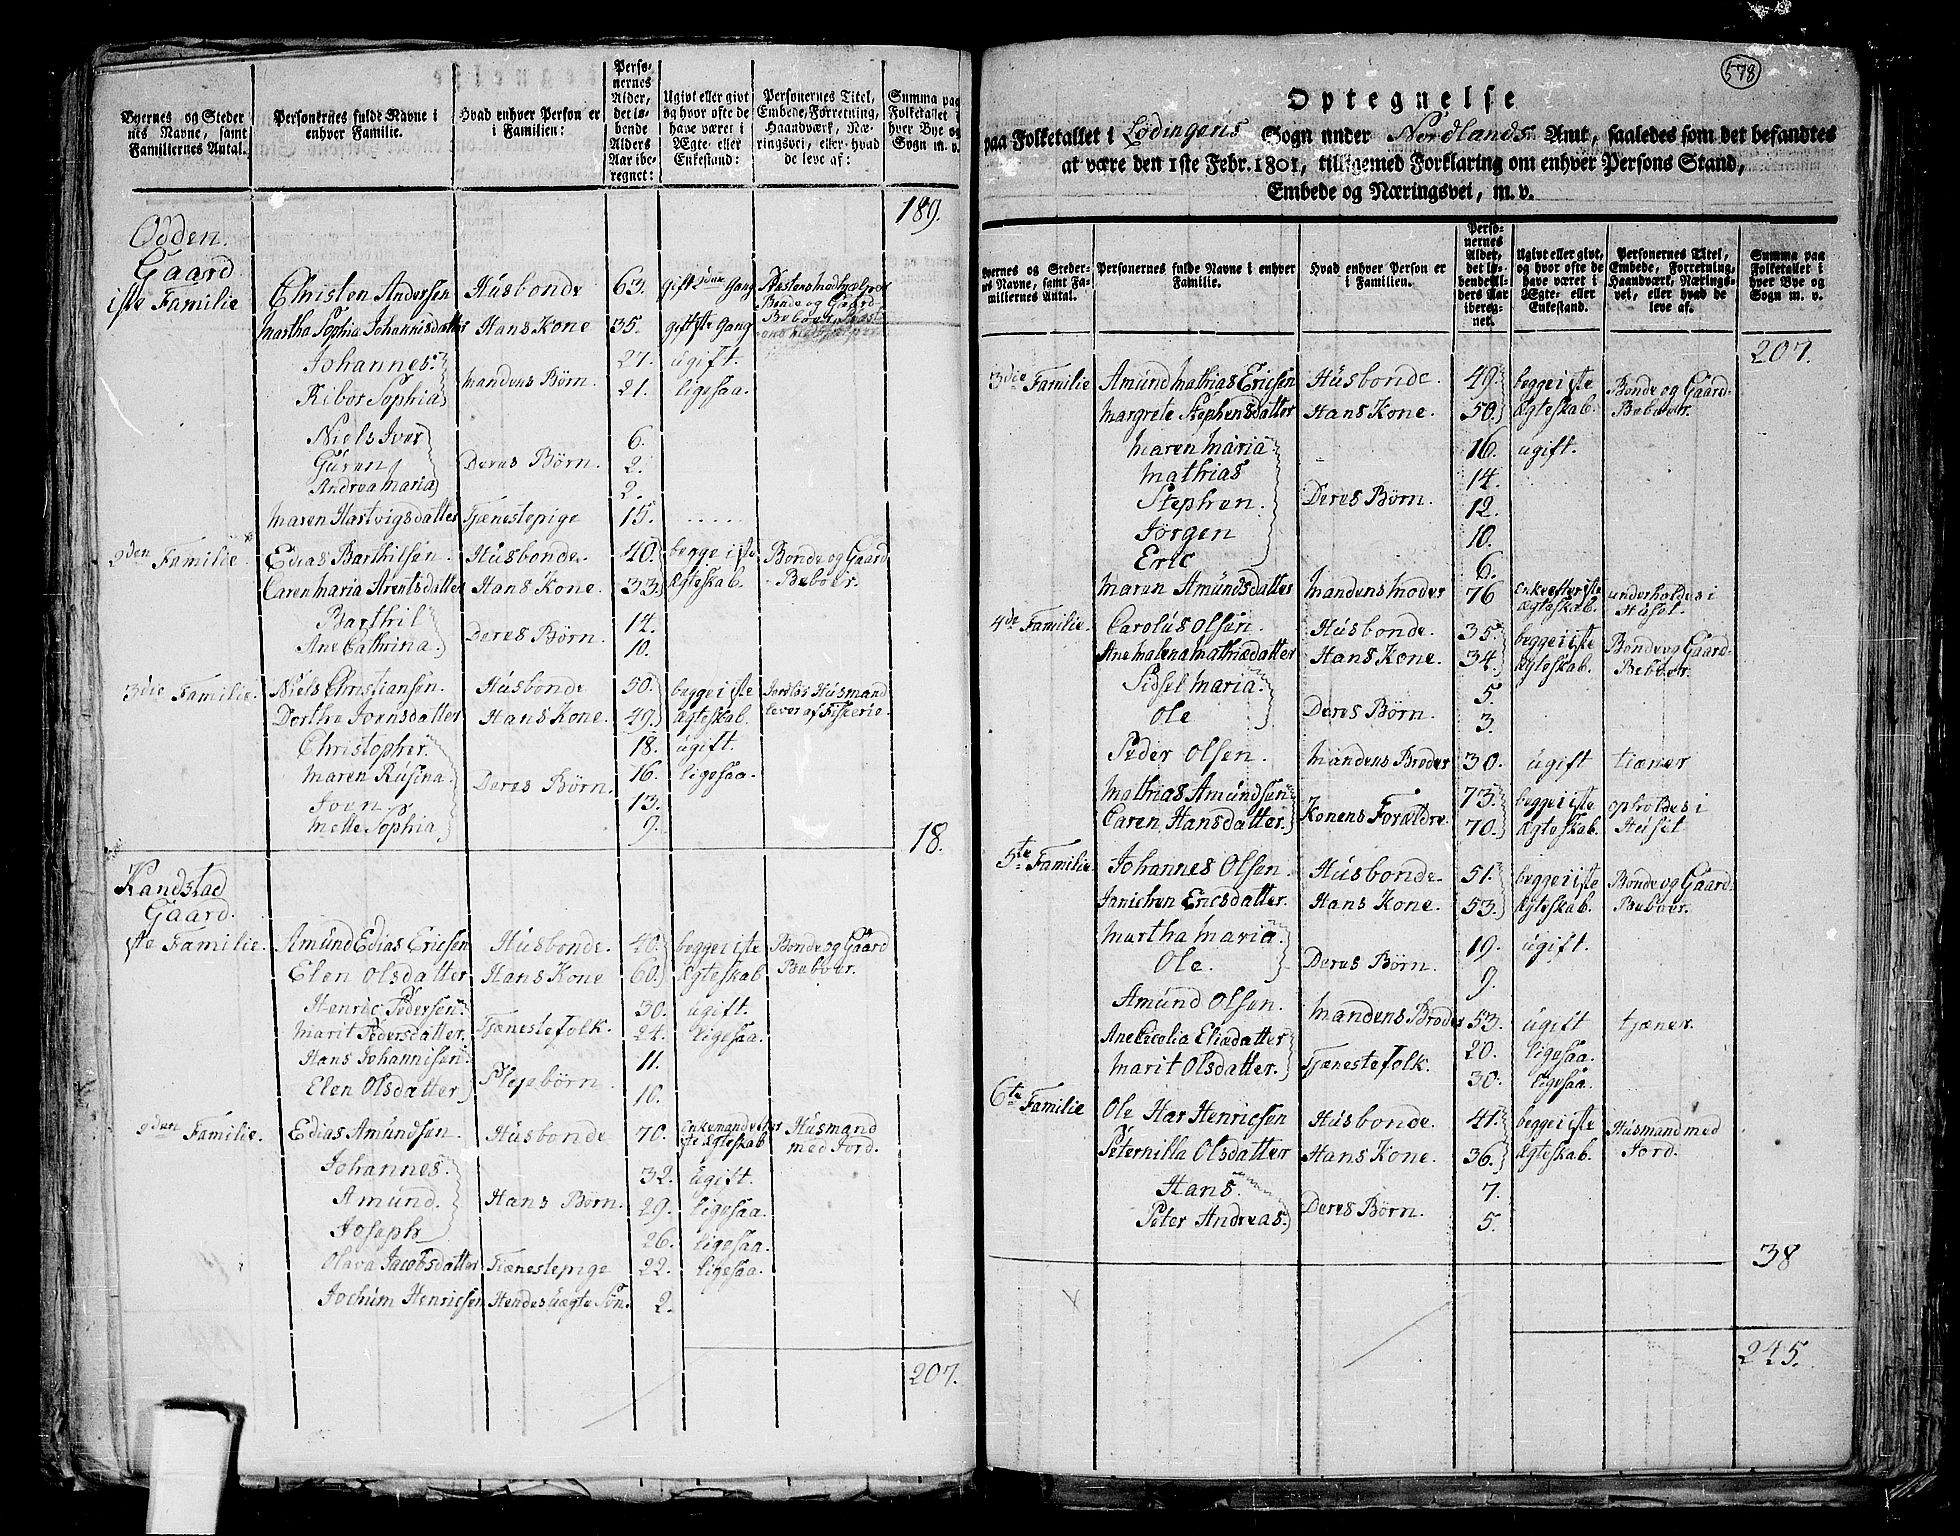 Byernes og Steder
nes Navne, samt
Familiernes Antal.
Personernes fulde Navne i
enhver Familie.
Hvad enhver Person er
i Familien:
Perso-
nernes
Alder,
det lø-
bende
Alders
Aar ibe-
regnet:
Ugivt eller givt
og hvor ofte de
have været i
Ægte- eller
Enkestand:
Personernes Titel,
Embede, Forretning,
Haandværk, Næ-
ringsvei, eller hvad
de leve af:
Summa paa
Folketallet i
hver Bye og
Sogn m. v.
189.
Odden
Gaard
1ste Familie Christen Andersen Husbonde 63. gift 2den Gang
Bonde og Gaard
Martha Sophia Johannisdatter Hans Kone 35. gift 1ste Gang Beboer
Johannes 27. ugift.
Mandens Børn.
Ribor Sophia 21. ligesaa.
Niels Iver 6.
Guren Deres Børn. 2.
Andrea Maria 2.
Maren Hartvigsdatter Tjænestepige 15. .....
2den Familie Edias Barthilsen. Husbonde. 40. begge i 1ste Bonde og Gaard
Caren Maria Arentsdatter Hans Kone. 33. Ægteskab. Beboer.
Barthil 14.
Deres Børn.
Ane Cathrina. 10.
3die Familie. Niels Christiansen. Husbonde 50. begge i 1ste Jordløs Husmand
Dorthe Jornsdatter Hans Kone. 49. Ægteskab. lever af Fiskerie
Christopher. 18. ugift.
Maren Rusina. 16. ligesaa.
Deres Børn.
Joen 13.
Mette Sophia 9.
18.
Kandstad
Gaard.
1ste Familie. Amund Edias Ericsen Husbonde. 40. begge i 1ste Bonde og Gaard
Elen Olsdatter Hans Kone 60. Ægteskab Beboer.
Henric Pedersen 30. ugift.
Marit Pedersdatter. Tjænestefolk. 24. ligesaa.
Hans Johannisen 11.
Plejebørn.
Elen Olsdatter 10.
2den Familie. Edias Amundsen. Husbonde 70. Enkemand efter Husmand
1ste Ægteskab med Jord.
Johannes 32. ugift.
Amund. Hans Børn. 29. ligesaa.
Joseph 26. ligesaa.
Olava Jacobsdatter Tjænestepige 22. ligesaa.
Jochum Henricsen Hendes uægte Søn. 2.
207.
578
Optegnelse
paa Folketallet i Lødingens Sogn under Nordlands Amt, saaledes som det befandtes
at være den 1ste Febr. 1801, tilligemed Forklaring om enhver Persons Stand,
Embede og Næringsvei, m. v.
Byernes og Steder-
nes Navne, samt Fa-
miliernes Antal.
Personernes fulde Navne i enhver
Familie.
Hvad enhver Person er
i Familien.
Perso-
nernes
Alder,
det lø-
bende Al-
ders Aar
iberegnet.
Ugivt eller givt,
og hvor ofte de
have været i
Ægte- eller
Enkestand.
Personernes Titel,
Embede, Forretning,
Haandværk, Nærings-
vei, eller hvad de
leve af.
Summa paa
Folketallet i
hver Bye og
Sogn m. v.
207.
3die Familie Amund Mathias Ericsen Husbonde. 49. begge i 1ste Bonde og Gaard-
Margrete Stephensdatter Hans Kone. 50. Ægteskab. Beboer.
Maren Maria 16. ugift.
Mathias 14.
Stephen Deres Børn. 12.
Jørgen 10.
Eric 6.
Maren Amundsdatter Mandens Moder 76 Enke efter 1ste Ægteskab. underholdes i Huset.
4de Familie. Carolus Olsen. Husbonde. 35. begge i 1ste Bonde og Gaard-
Ane Malena Mathiædatter Hans Kone. 34. Ægteskab. Beboer.
Sidsel Maria 5.
Deres Børn.
Ole 3.
Peder Olsen. Mandens Broder 30. ugift tiæner
Mathias Amundsen 73. begge i 1ste opholdes i
Konens Forældre.
Caren Hansdatter. 70. Ægteskab. Huset
5te Familie. Johannes Olsen. Husbonde. 51. begge i 1ste Bonde og Gaard
Janichen Ericsdatter. Hans Kone. 53. Ægteskab. Beboer.
Martha Maria. 19. ugift.
Deres Børn.
Ole. 9.
Amund Olsen. Mandens Broder 53. ugift tjæner.
Ane Cicilia Eliædatter 20. ligesaa.
Tjænestefolk.
Marit Olsdatter. 30. ligesaa.
6te Familie Ole Har Henricsen Husbonde. 41. begge i 1ste Husmand med
Peternilla Olsdatter Hans Kone. 36. Ægteskab. Jord.
Hans. 7.
Deres Børn.
Peter Andreas. 5.
38
245.